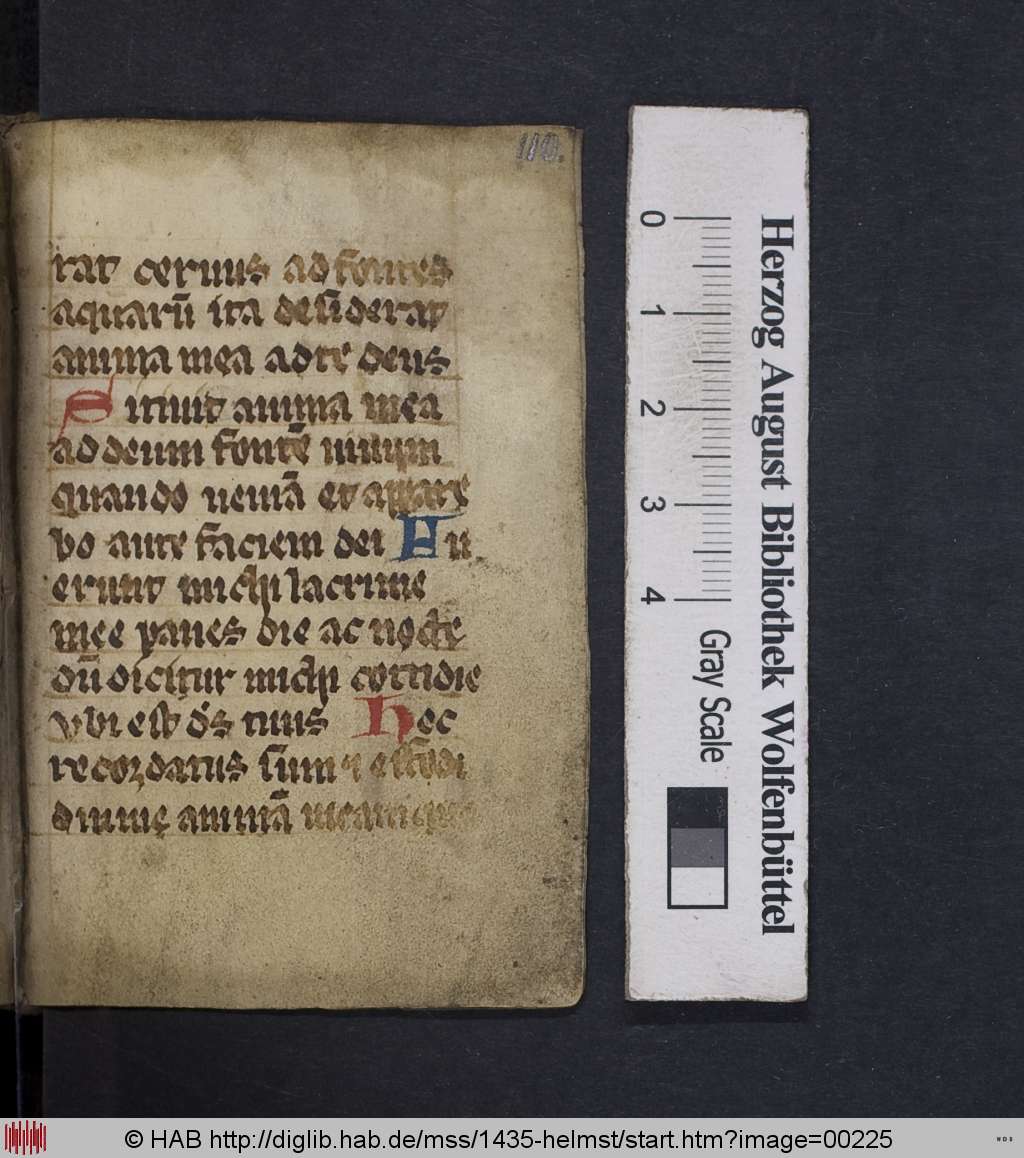 110.
rat ceruus ad fontes
aquarū ita desiderat
anima mea ad te deus
Sitiuit anima mea
ad deum fontē uiuum
quando ueniā et appare
bo ante faciem dei Fu
erunt michi lacrime
mee panes die ac nocte
dū dicitur michi cottidie
vbi est ds̄ tuus Hec
recordatus sum ⁊ effudi
in me animā meam qm̄
Herzog August Bibliothek Wolfenbüttel
0 1 2 3 4
Gray Scale
© HAB http://diglib.hab.de/mss/1435-helmst/start.htm?image=00225